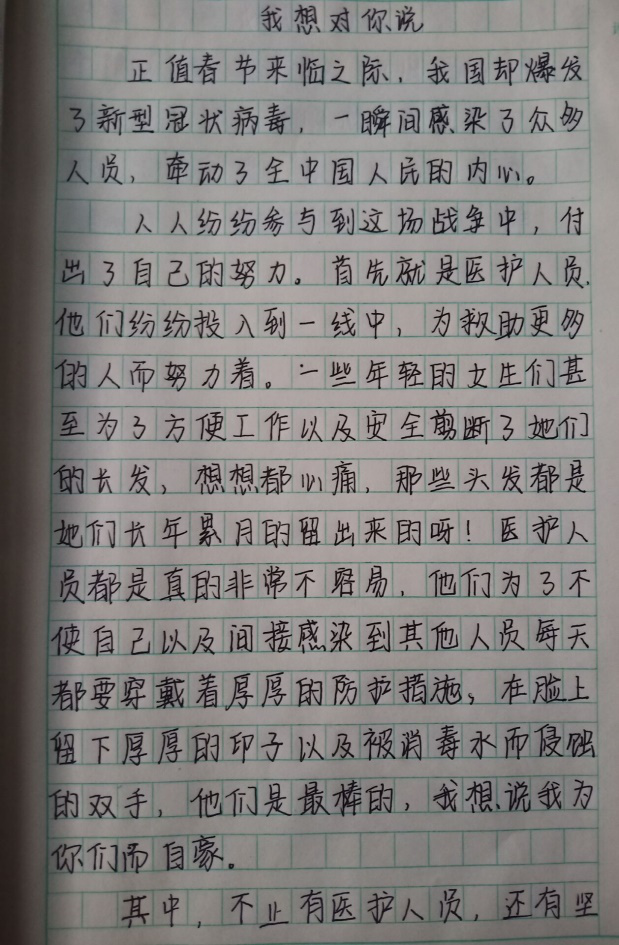 我想对你说
正值春节来临之际，我国却爆发
了新型冠状病毒，一瞬间感染了众多
人员，牵动了全中国人民的内心。
人人纷纷参与到这场战争中，付
出了自己的努力。首先就是医护人员，
他们纷纷投入到一线中，为救助更多
的人而努力着。一些年轻的女生们甚
至为了方便工作以及安全剪断了她们
的长发，想想都心痛，那些头发都是
她们长年累月的留出来的呀！医护人
员都是真的非常不容易，他们为了不
使自己以及间接感染到其他人员每天
都要穿戴着厚厚的防护措施，在脸上
留下厚厚的印子以及被消毒水而侵蚀
的双手，他们是最棒的，我想说我为
你们而自豪。
其中，不止有医护人员，还有坚